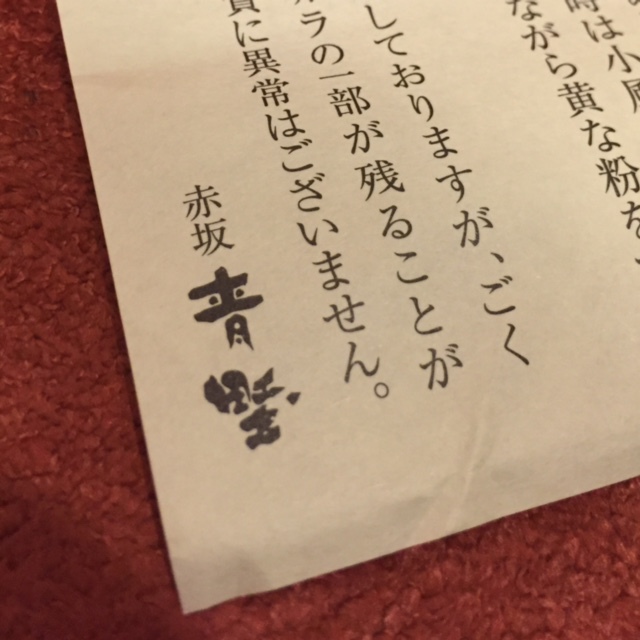 は小
ながら黄な粉を、
しておりますが、ごく
ラの一部が残ることが
質に異常はございません。
赤坂 青野